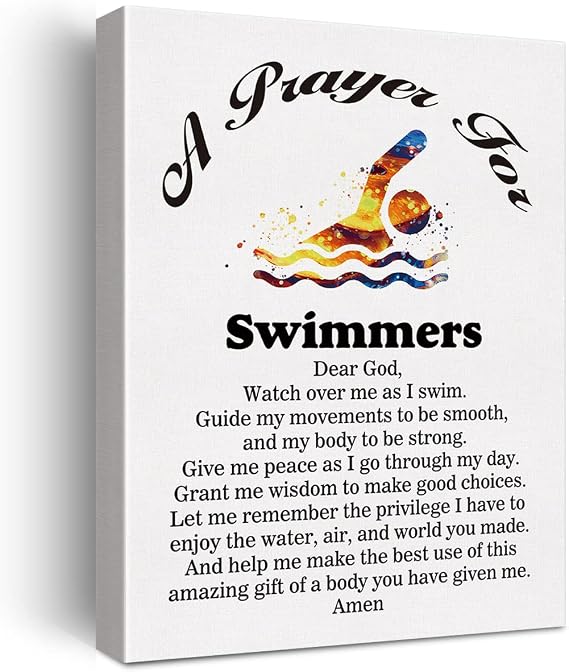 A Prayer For
Swimmers
Dear God,
Watch over me as I swim.
Guide my movements to be smooth,
and my body to be strong.
Give me peace as I go through my day.
Grant me wisdom to make good choices.
Let me remember the privilege I have to
enjoy the water, air, and world you made.
And help me make the best use of this
amazing gift of a body you have given me.
Amen